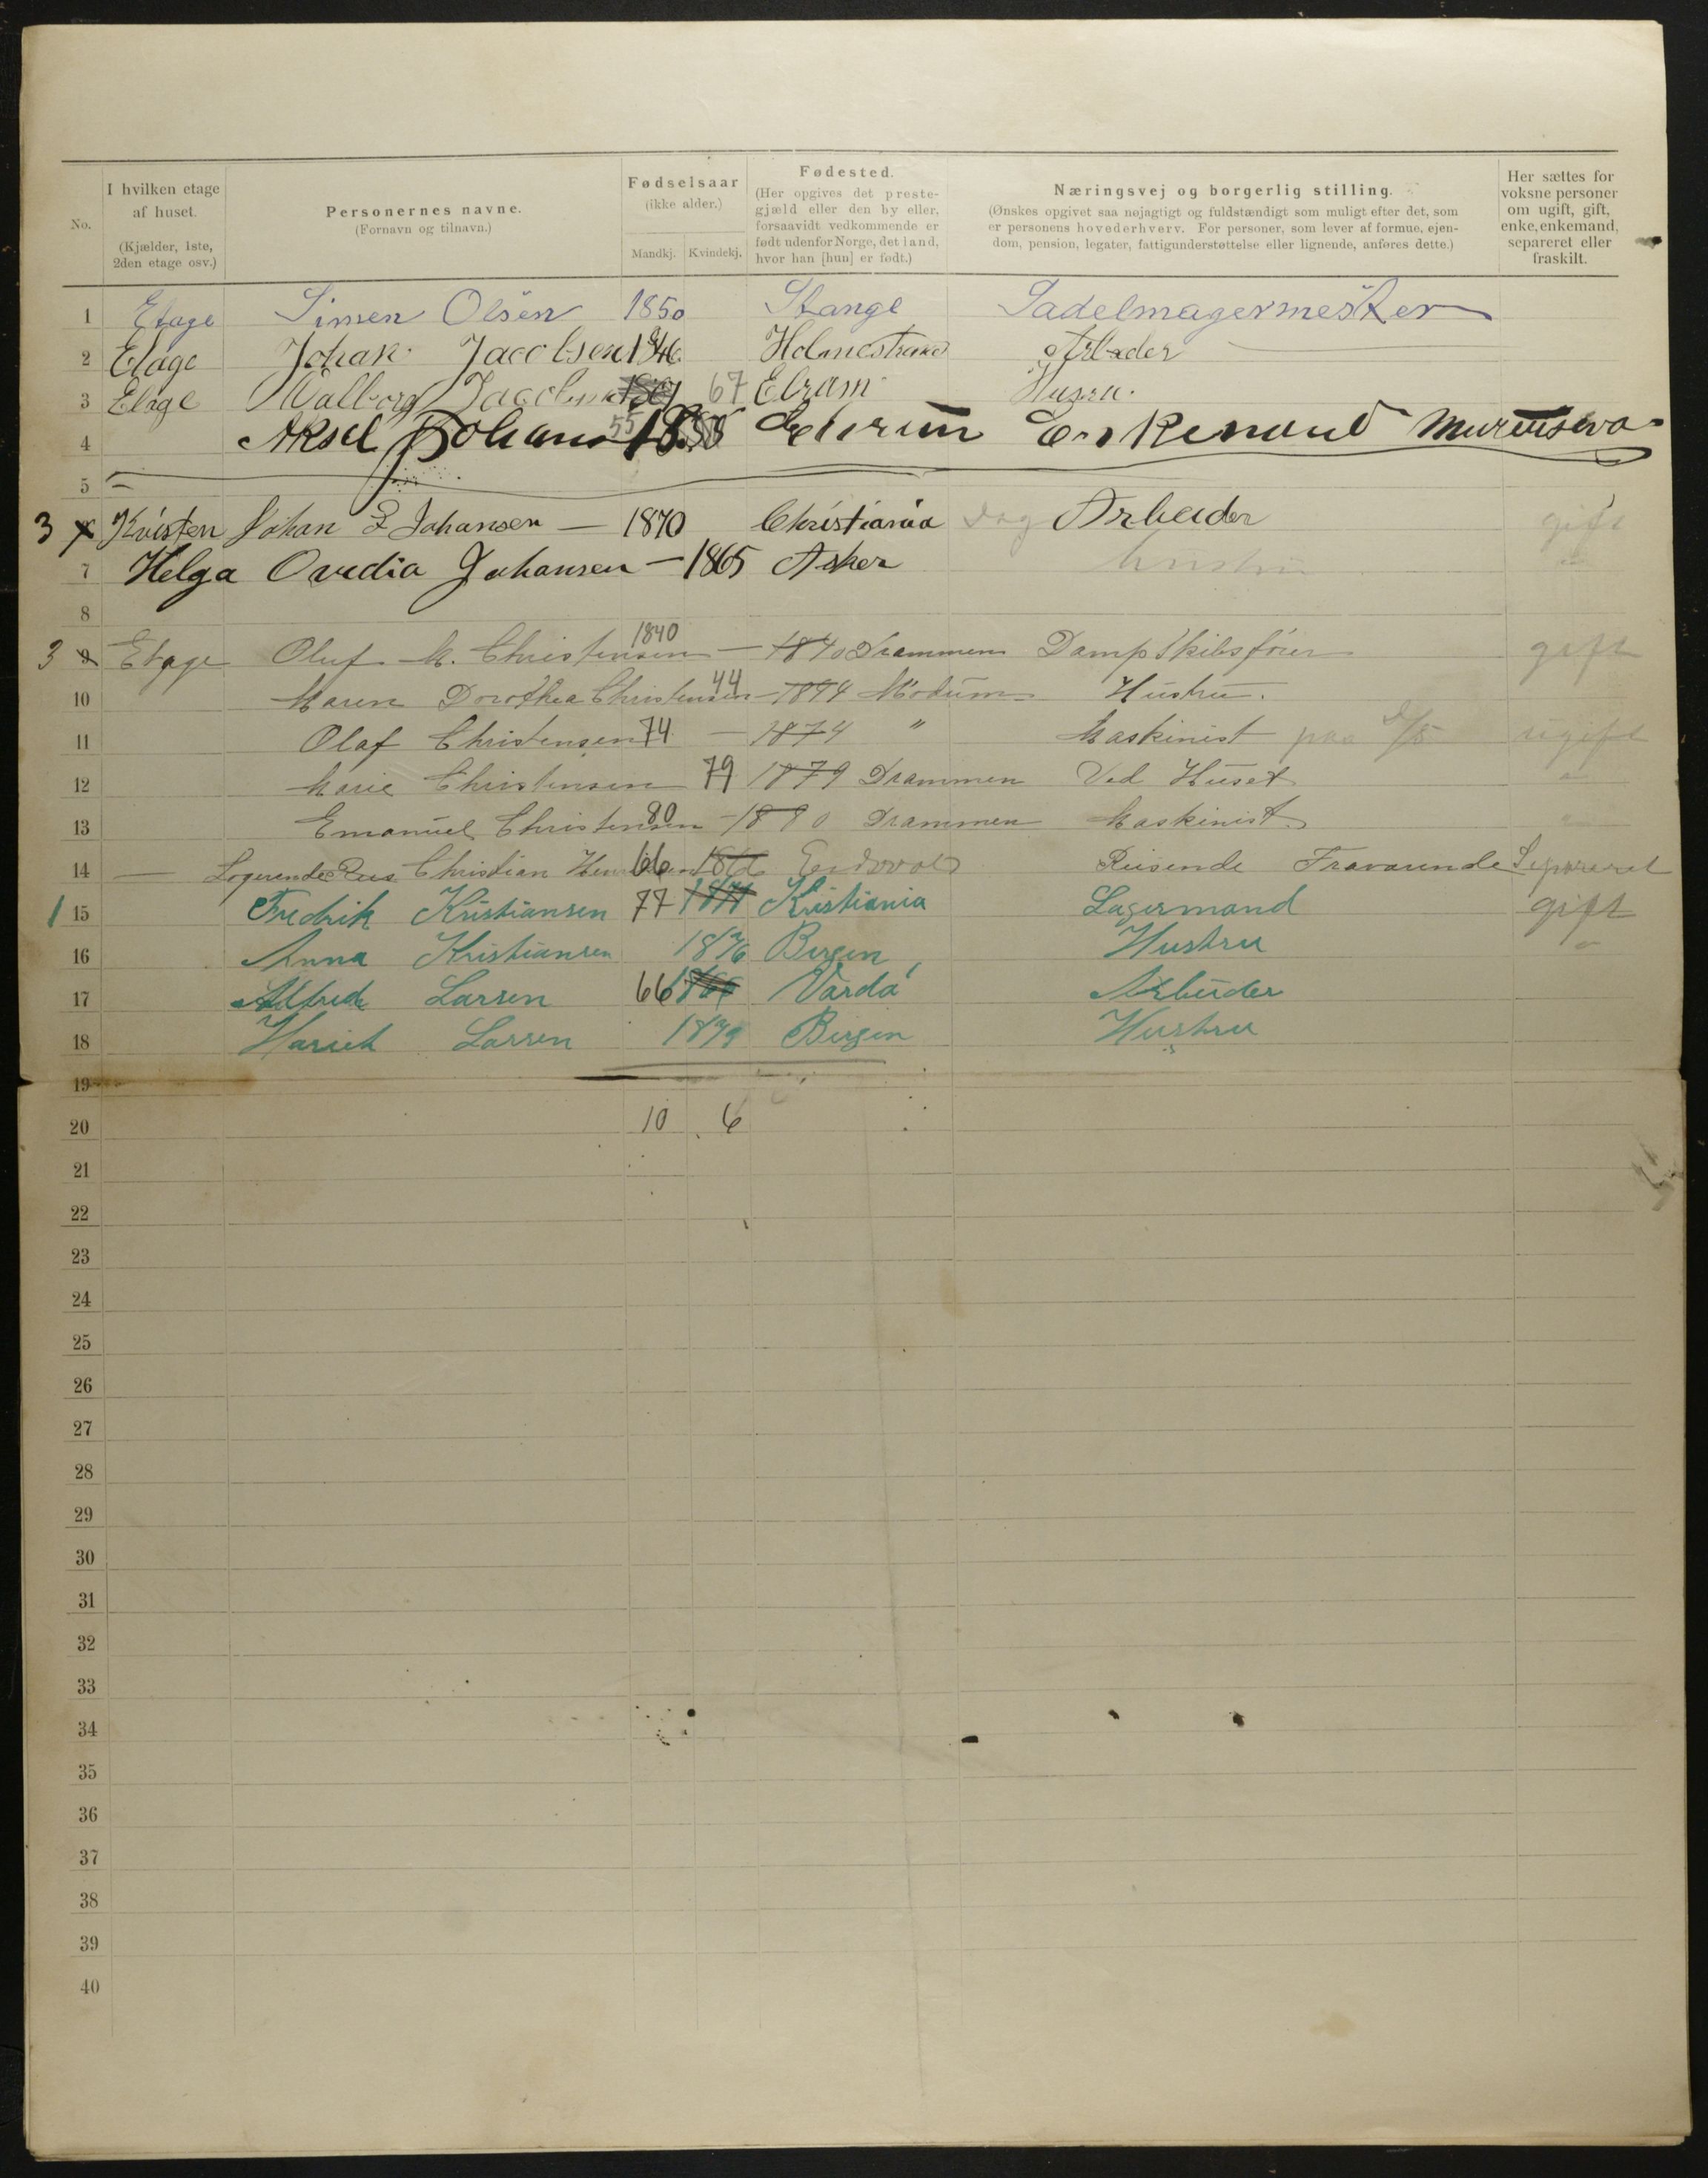 No. | I hvilken etage af huset. (Kjælder, 1ste, 2den etage osv.) | Personernes navne. (Fornavn og tilnavn.) | Fødselsaar (ikke alder.) Mandkj. Kvindekj. | Fødested. (Her opgives det preste- gjæld eller den by eller, forsaavidt vedkommende er født udenfor Norge, det land, hvor han [hun] er født.) | Næringsvej og borgerlig stilling. (Ønskes opgivet saa nøjagtigt og fuldstændigt som muligt efter det, som er personens hovederhverv. For personer, som lever af formue, ejen- dom, pension, legater, fattigunderstøttelse eller lignende, anføres dette.) | Her sættes for voksne personer om ugift, gift, enke, enkemand, separeret eller fraskilt.
1 Etage Simen Olsen 1850 Stange Sadelmagermester
2 Etage Johan Jacobsen 1846 Holmestrand Arbeder
3 Etage Walborg 67
4 Aksel 55
5
3 Kvisten Johan Johansen — 1870 Christiania Dag Arbeider gift
7 Helga Ovedia Johansen — 1865 Asker Hustru
8
3 9 Etage Oluf M. Christensen 1840 — 1840 Drammen DampSkibsfører gift
10 Maren Dorothea Christensen 44 — 1844 Modum Hustru.
11 Olaf Christensen 74 — 1874 " Maskinist paa ugift
12 Marie Christensen 79 1879 Drammen Ved Huset
13 Emanuel Christensen 80 — 1880 Drammen Maskinist
14 — Logerende Christian 66 1866 Reisende Fraværende Separeret
1 15 Fredrik Kristiansen 77 Kristiania Lagermand gift
16 Anna Kristiansen 1876 Bergen Hustru
17 Alfred Larsen 66 Vardø Arbeider
18 Larsen Bergen Hustru
19
20 10 6
21
22
23
24
25
26
27
28
29
30
31
32
33
34
35
36
37
38
39
40